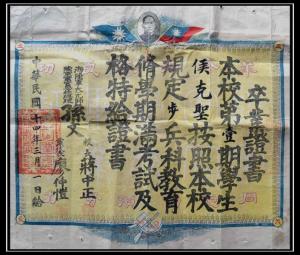 卒業證書
本校第壹期學生
侯克聖按照本校
規定步兵科教育
修業期滿考試及
格特給證書
海陸軍大元帥
陸軍軍官學校總理 孫文
校長 蔣中正
黨代表 廖仲愷
中華民國十四年三月一日給